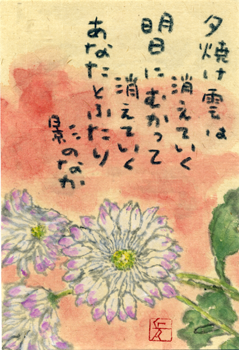 夕焼け雲は
消えていく
明日にむかって
消えていく
あなたとふたり
このなか